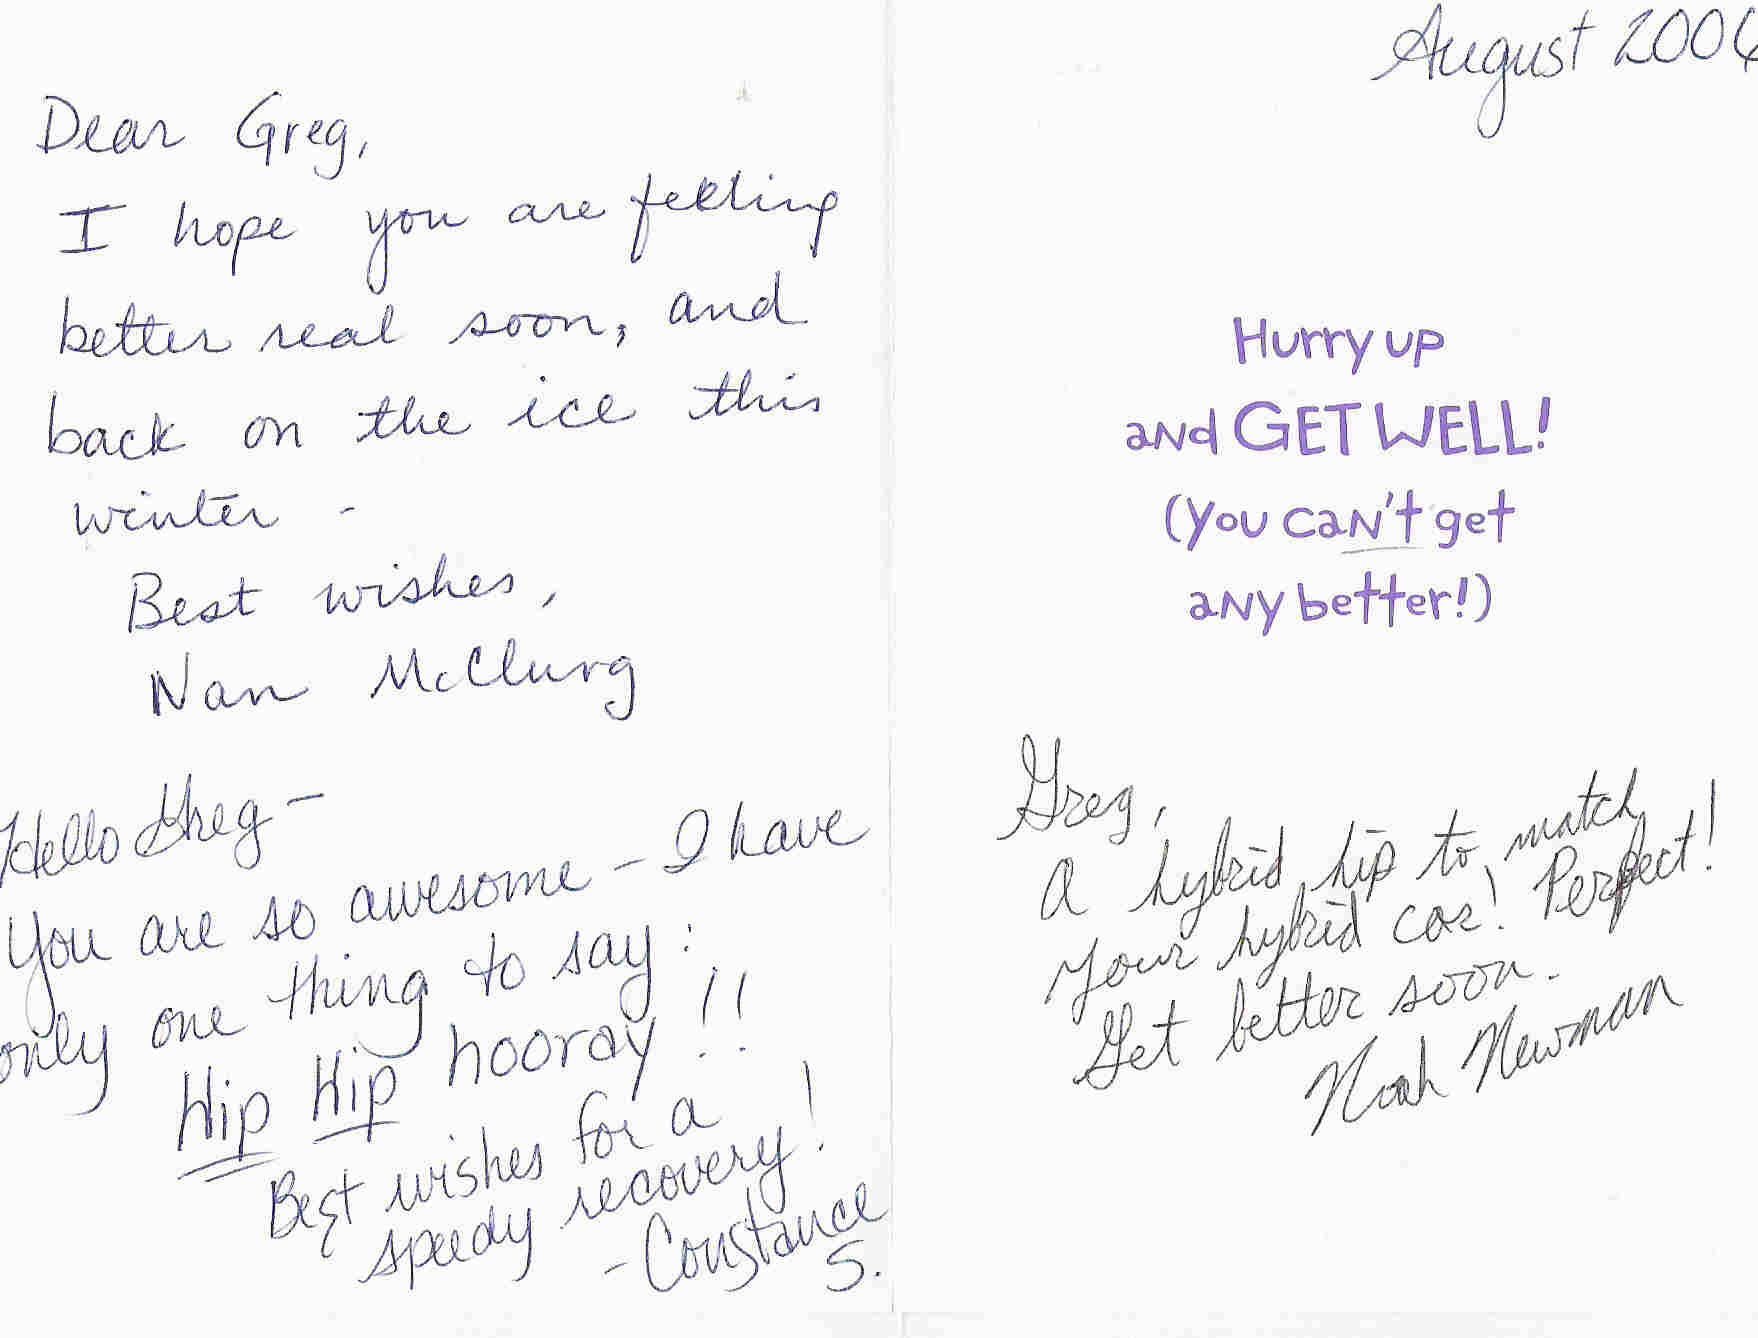 Dear Greg,
I hope you are feeling
better real soon, and
back on the ice this
winter -
Best wishes,
Nan McClurg
Hello Greg -
You are so awesome - I have
only one thing to say:
Hip Hip hooray!!
Best wishes for a
speedy recovery!
- Constance
S.
August 2006
Hurry up
and GET WELL!
(You can't get
any better!)
Greg,
A hybrid hip to match
your hybrid car! Perfect!
Get better soon.
Noah Newman